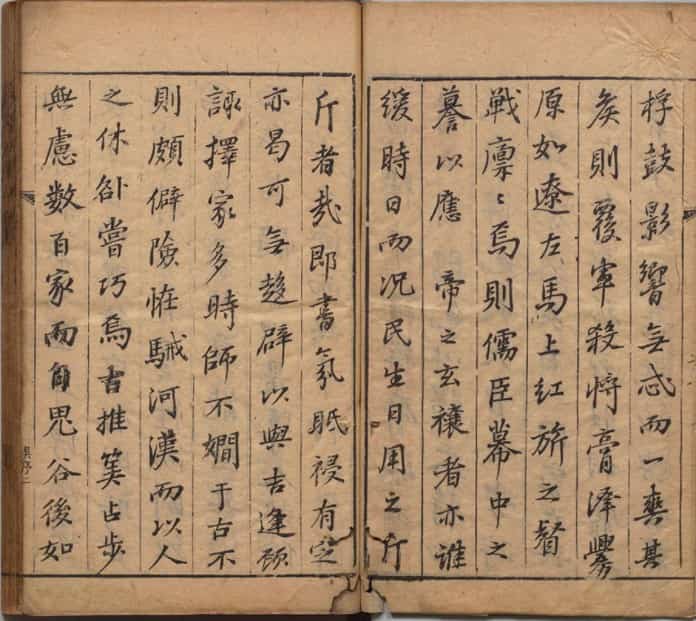 桴鼓影響無忒而一爽其
矦則覆軍殺將膏澤釁
原如遼左馬上紅旂之督
戦凛〻焉則儒臣幕中之
謩以應帝之玄禳者亦誰
緩時日而况民生日用之斤
斤者哉即書氛眂祲有定
亦曷可無趍辟以與吉逢顾
諏擇家多時師不嫺于古不
則頗僻險恠駴河漢而以人
之休卻嘗巧焉吉推筭占步
無慮数百家而自鬼谷後如